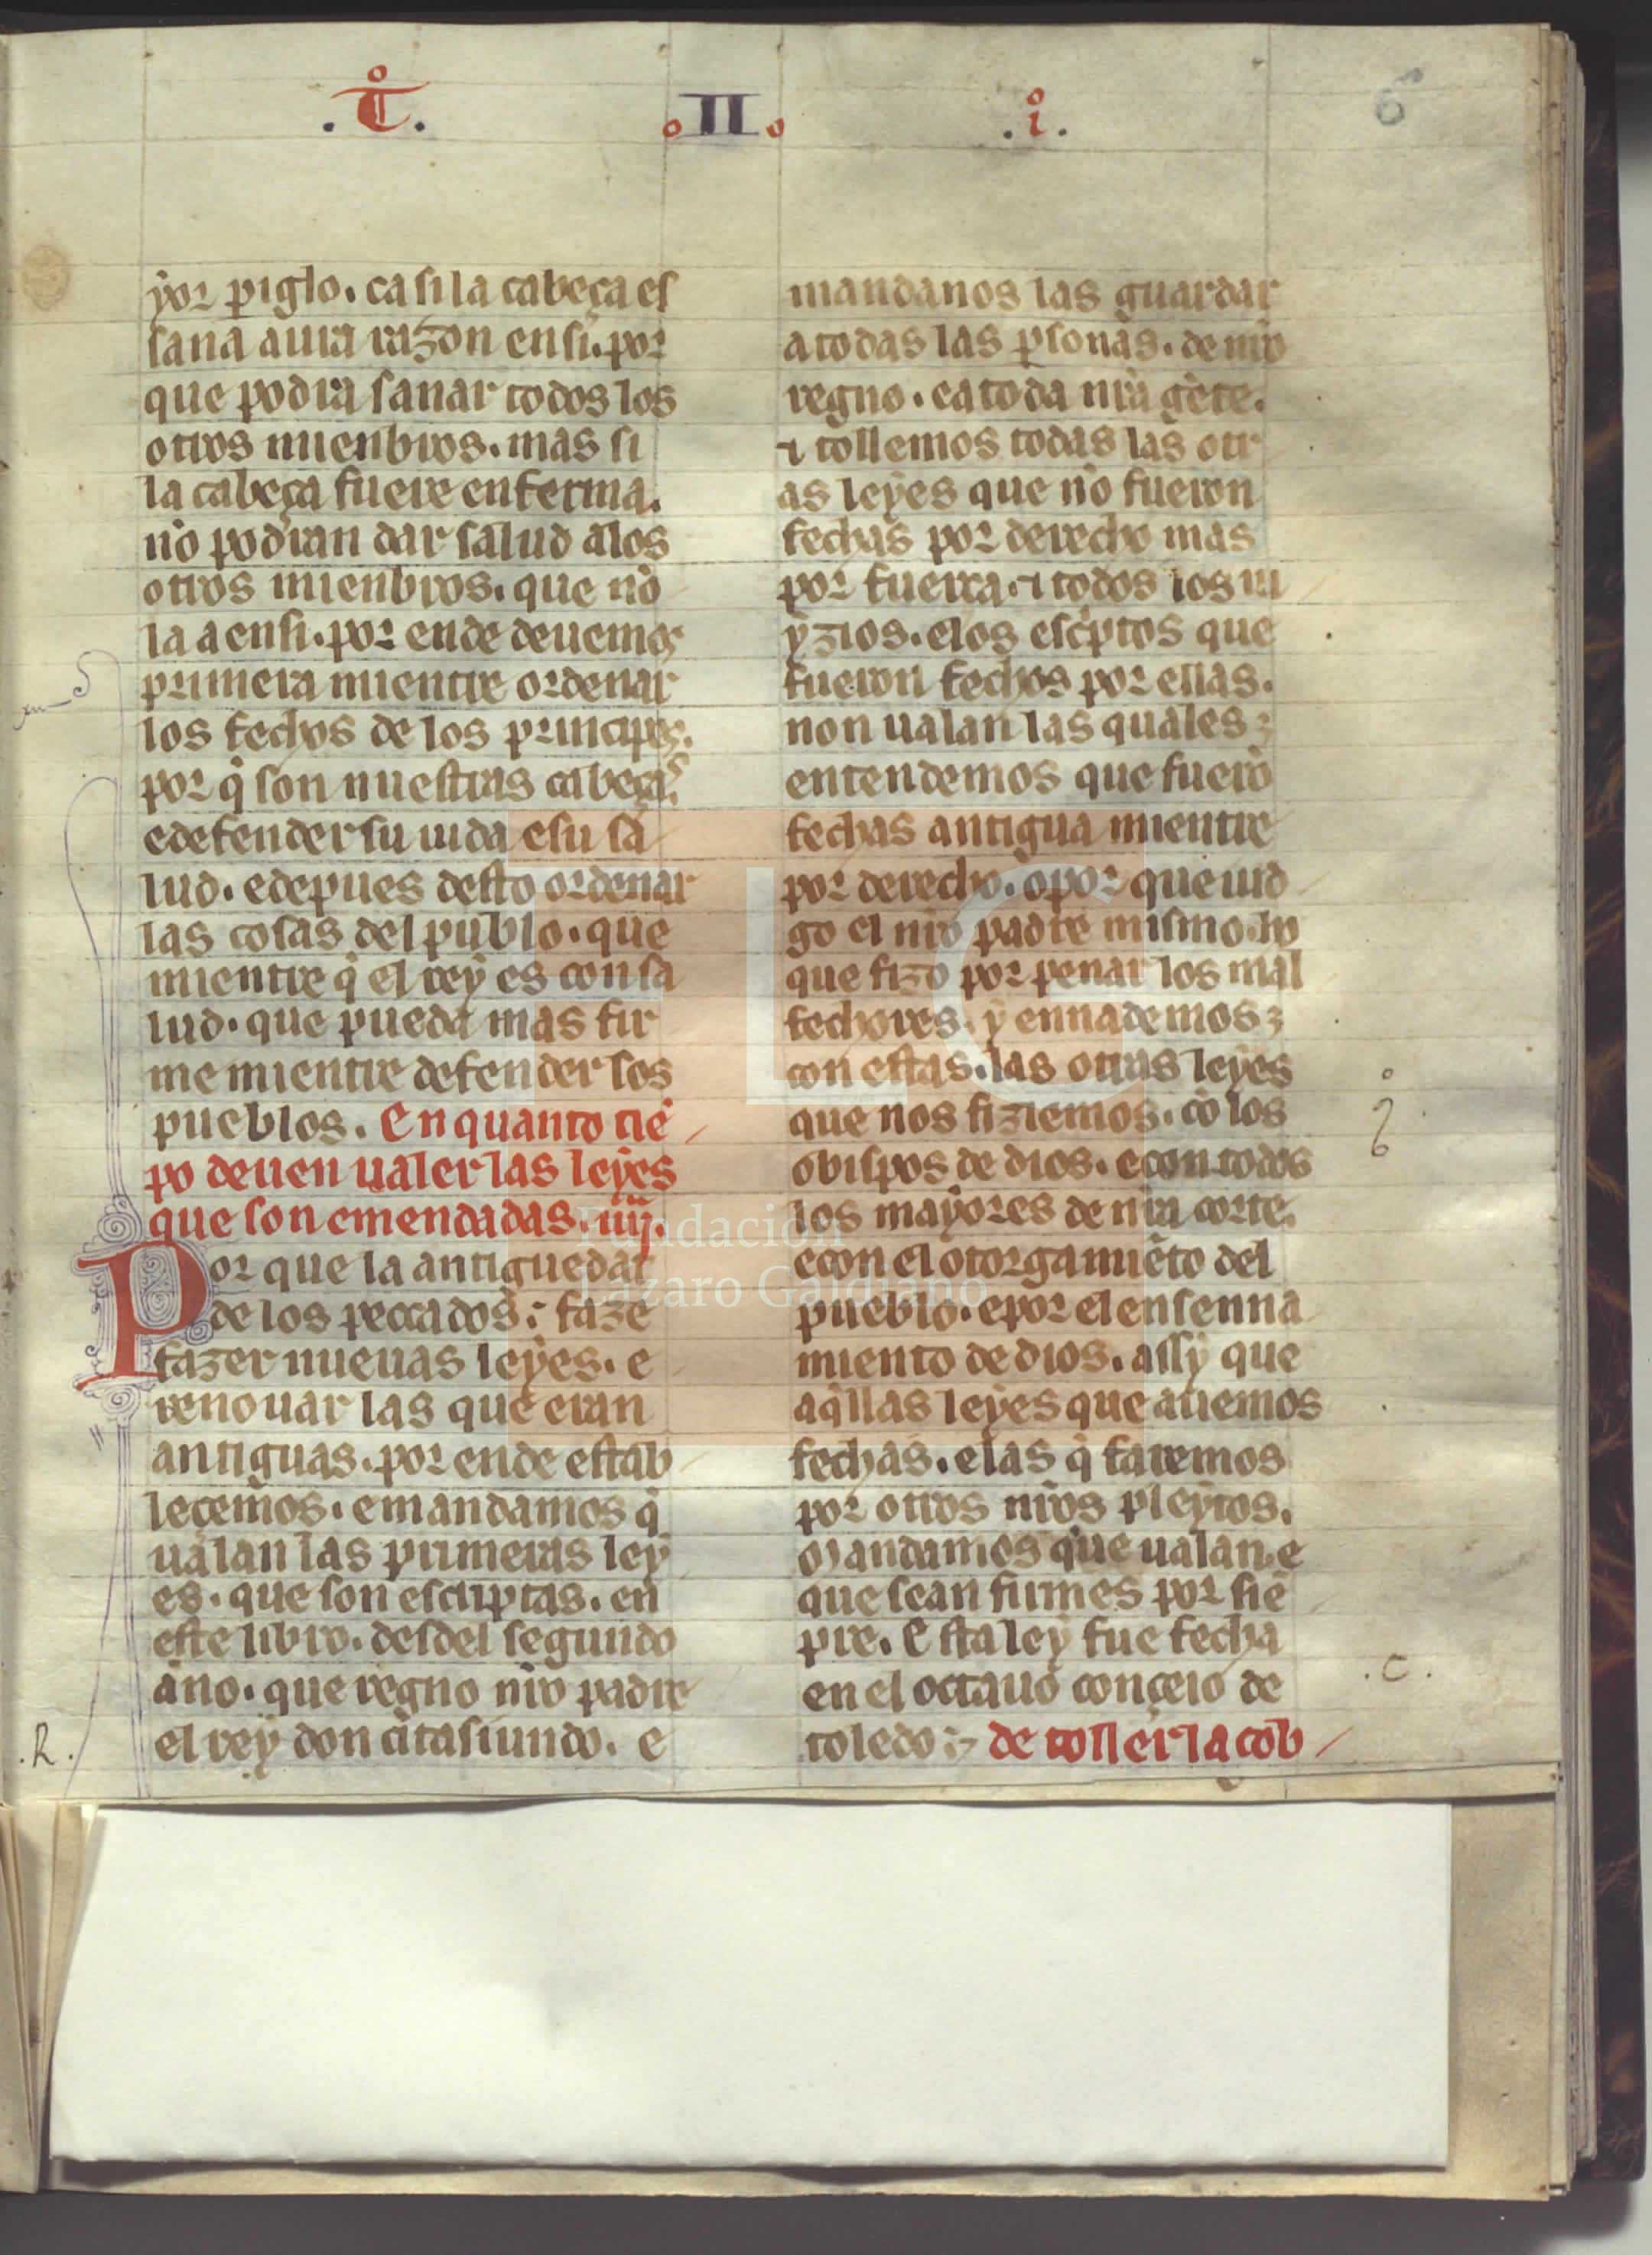 .T̊. .II. .i̊. 6
yor ꝑiglo. ca si la cabeça es
sana aura razon en si. por
que podra sanar todos los
otros mienbros. mas si
la cabeça fuere enferma.
nō podran dar salud alos
otros mienbros. que nō
la a ensi. por ende deuemos
primera mientre ordenar
los fechos de los principes.
por q̄ son nuestras cabeças
e defender su uida e su sa
lud. e depues desto ordenar
las cosas del publo. que
mientre q̄ el rey es con sa
lud. que pueda mas fir
me mientre defender los
pueblos. En quanto tiē
po deuen ualer las leyes
que son emendadas. iiij.
Por que la antiguedat
de los peccados: faze
fazer nueuas leyes. e
renouar las que eran
antiguas. por ende estab
leçemos. e mandamos q̄
ualan las primeras ley
es. que son escriptas. en
este libro. desdel segundo
anno. que regno nr̄o padre
el rey don citasiundo. e
.R.
mandanos las guardar
a todas las ꝑsonas. de nr̄o
regno. e a toda nr̄a gēte.
⁊ tollemos todas las otr
as leyes que nō fueron
fechas por derecho mas
por fuerça. ⁊ todos los iu
yzios. e los escⁱptos que
fueron fechos por ellas.
non ualan las quales
entendemos que fuerō
fechas antigua mientre
por derecho. o por que iud
go el nr̄o padre mismo. lo
que fizo por penar los mal
fechores. y ennademos
con estas. las otras leyes
que nos fiziemos. cō los
obispos de dios. e con todos
los mayores de nr̄a corte.
e con el otorgamiēto del
pueblo. e por el ensenna
miento de dios. assy que
aq̄llas leyes que auemos
fechas. e las q̄ faremos
por otros nr̄os pleytos.
Mandamos que ualan. e
que sean firmes por siē
pre. Esta ley fue fecha
en el octauo conçeio de
toledo. de toller la cob
.c.
FLG
Fundación
Lázaro Galdiano